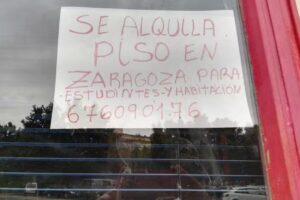 SE ALQUILA
PISO EN
ZARAGOZA PARA
-ESTUDIANTES-Y HABITACIÓN
676090176